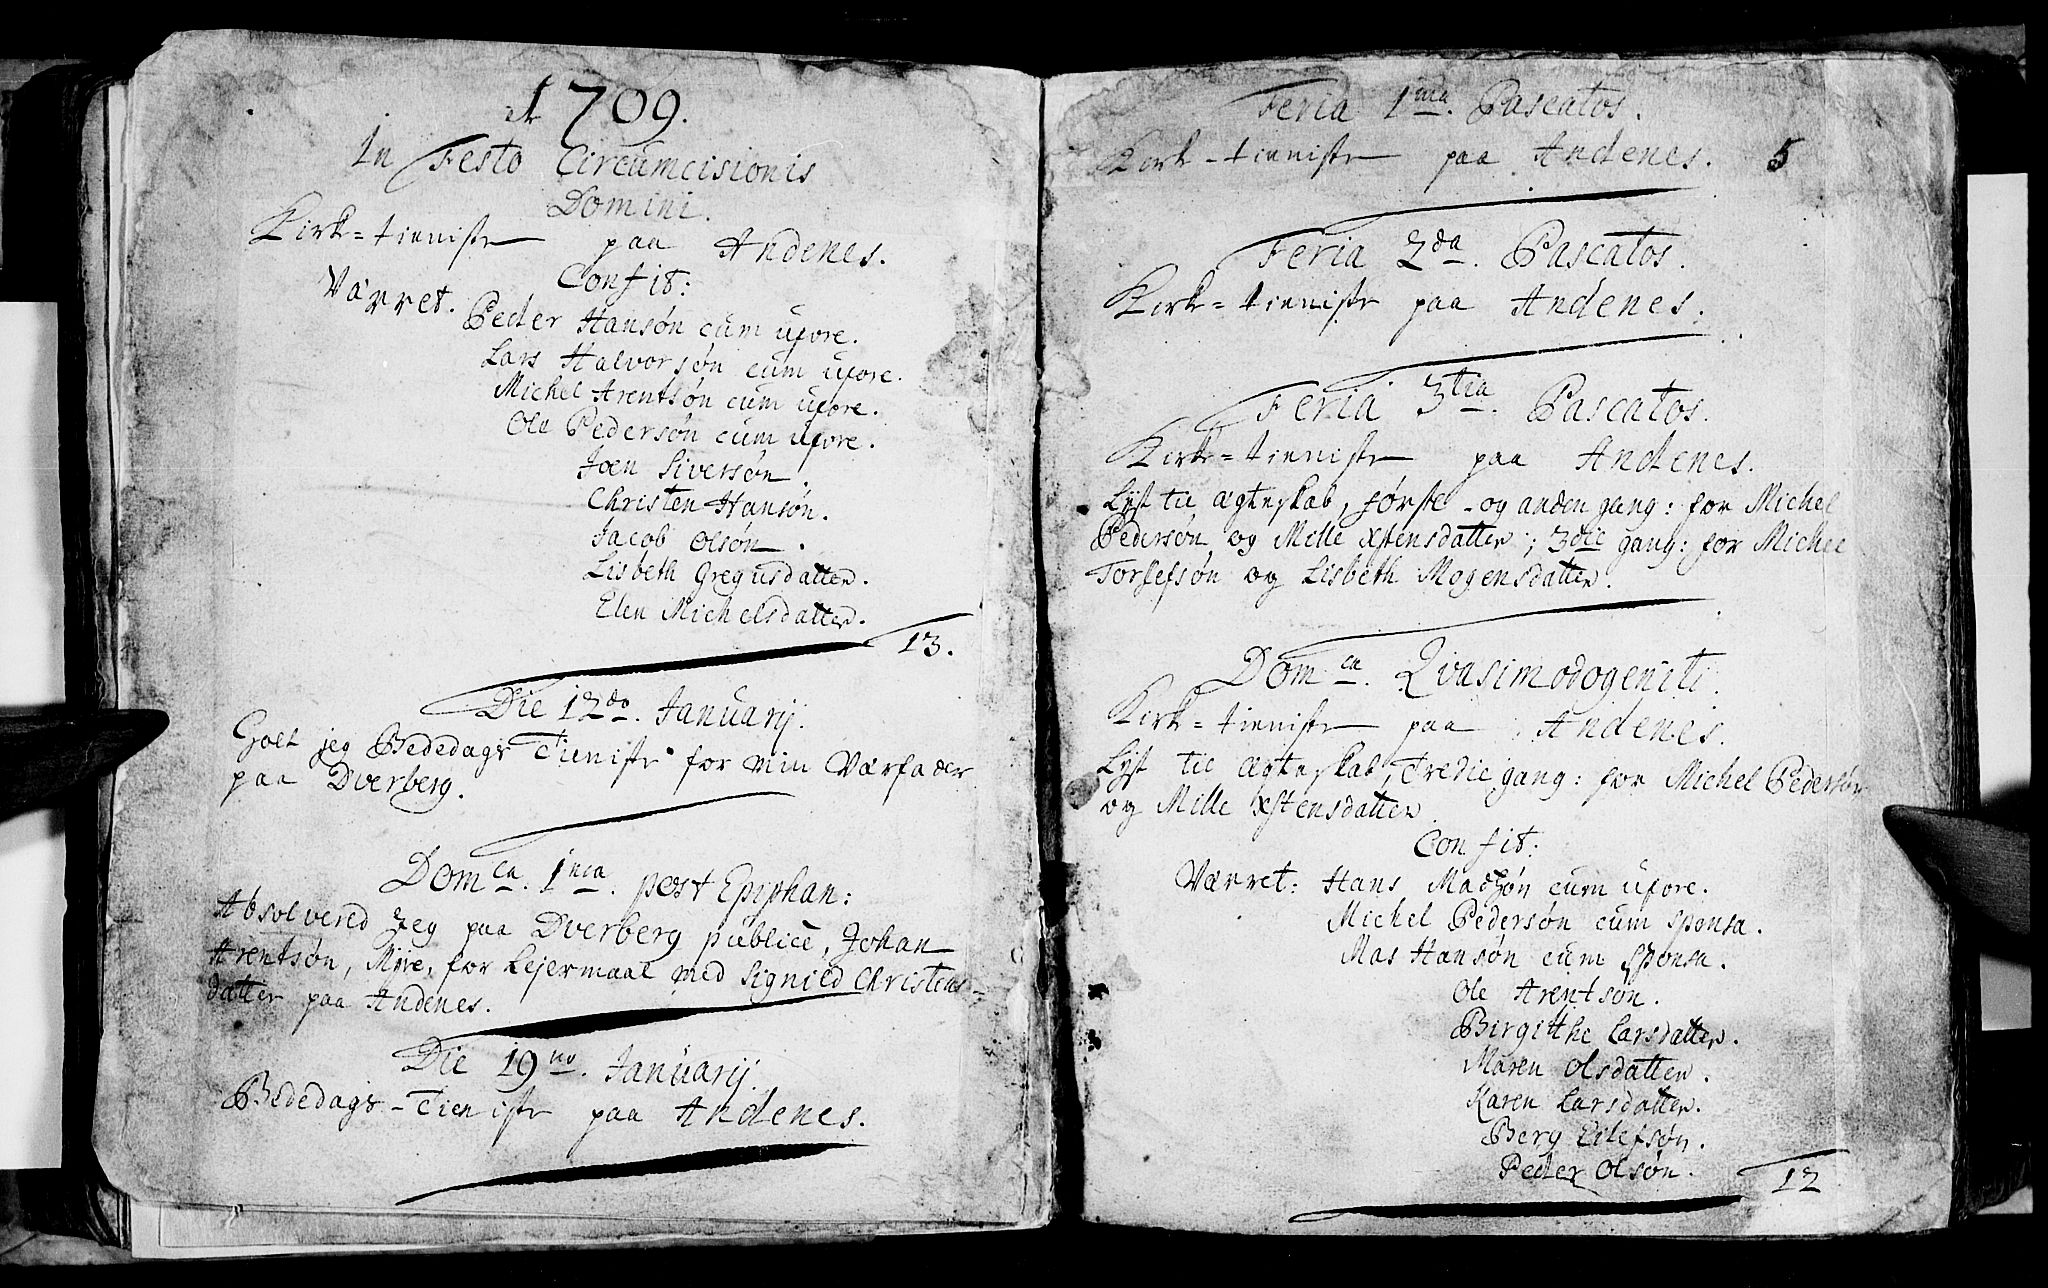 1709.
In Festo Circumcisionis
Domini.
Kirke=tieniste paa Andenes.
Confit:
Værret. Peder Hansøn cum uxore.
Lars Halvorsøn cum uxore.
Michel Arentsøn cum uxore.
Ole Pedersøn cum uxore.
Joen Siversøn.
Christen Hansøn.
Jacob Olsøn.
Lisbeth Gregusdatter.
Elen Michelsdatter.
13.
Die 12do. Januarij.
Holt jeg Bededags Tieniste for min Værfader
paa Dverberg.
Domca. 1ma. post Epiphan:
Absolvered Jeg paa Dverberg publicè, Johan
Arentsøn, Myre, for Lejermaal med Signild Christens=
datter paa Andenes.
Die 19no. Januarij.
Bededags-Tieniste paa Andenes.
Feria 1ma. Pascatos.
Kirke-tieniste paa Andenes. 5
Feria 2da. Pascatos.
Kirke=tieniste paa Andenes.
Feria 3tia. Pascatos.
Kirke=tieniste paa Andenes.
Lyst til ægteskab, første- og anden gang: for Michel
Pedersøn og Mille Xstensdatter; 3die gang: for Michel
Torlefsøn og Lisbeth Mogensdatter.
Domca. Qvasimodogeniti.
Kirke-tieniste paa Andenes.
Lyst til ægteskab, Tredie gang: for Michel Pedersøn
og Mille Xstensdatter.
Confit:
Værret: Hans Madsøn cum uxore.
Michel Pedersøn cum sponsa.
Mas Hansøn cum sponsa.
Ole Arentsøn.
Birgithe Larsdatter.
Maren Olsdatter.
Karen Larsdatter.
Berg Ellefsøn.
Peder Olsøn.
12